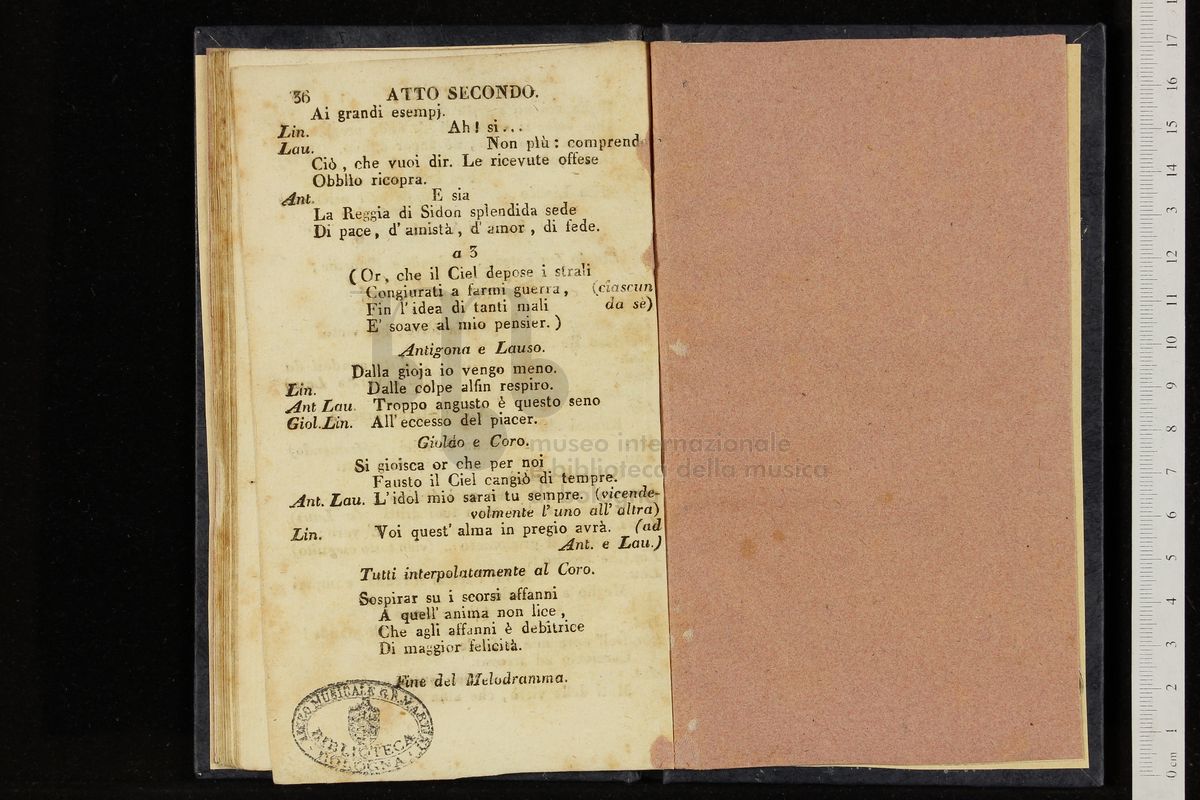 36 ATTO SECONDO.
Ai grandi esempj.
Lin. Ah! si...
Lau. Non più: comprend
Ciò, che vuoi dir. Le ricevute offese
Obblìo ricopra.
Ant. E sia
La Reggia di Sidon splendida sede
Di pace, d'amistà, d'amor, di fede.
a 3
(Or, che il Ciel depose i strali
Congiurati a farmi guerra, (ciascun
Fin l'idea di tanti mali da se)
E' soave al mio pensier.)
Antigona e Lauso.
Dalla gioja io vengo meno.
Lin. Dalle colpe alfin respiro.
Ant Lau. Troppo angusto è questo seno
Giol.Lin. All'eccesso del piacer.
Gioldo e Coro.
Si gioisca or che per noi
Fausto il Ciel cangiò di tempre.
Ant. Lau. L'idol mio sarai tu sempre. (vicende-
volmente l'uno all'altra)
Lin. Voi quest'alma in pregio avrà. (ad
Ant. e Lau.)
Tutti interpolatamente al Coro.
Sospirar su i scorsi affanni
A quell'anima non lice,
Che agli affanni è debitrice
Di maggior felicità.
Fine del Melodramma.
LICEO MUSICALE G.B. MARTINI
BIBLIOTECA
BOLOGNA
museo internazionale
e biblioteca della musica
di bologna
0 cm 1 2 3 4 5 6 7 8 9 10 11 12 3 14 15 16 17